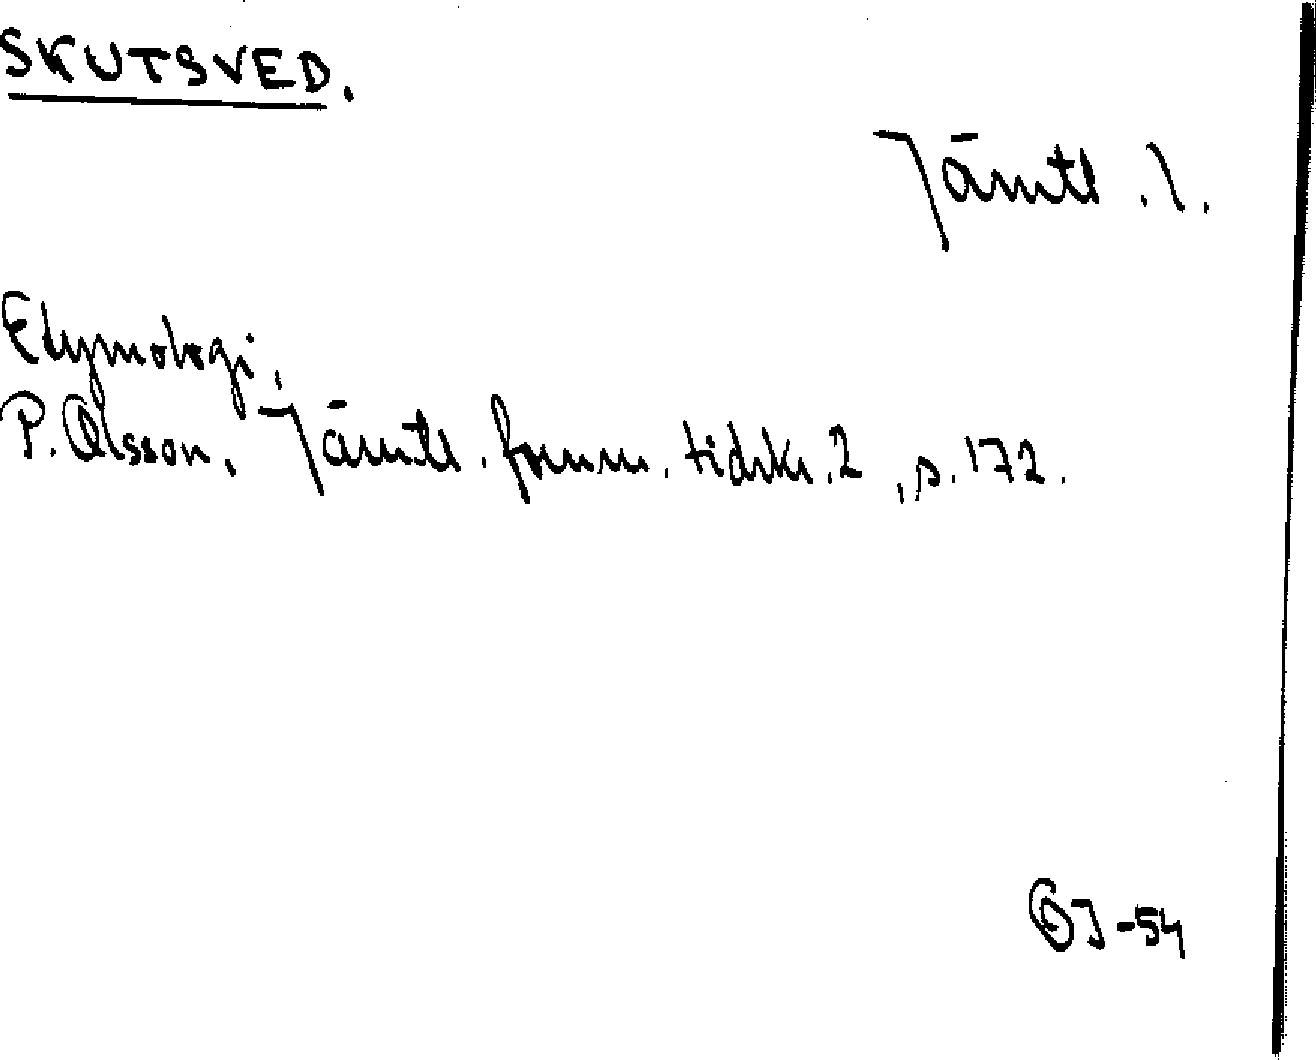 SKUTSVED.
Jämtl. l.
Etymologi:
P. Olsson, Jämtl. fornm. tidskr. 2, s. 172.
OJ-54